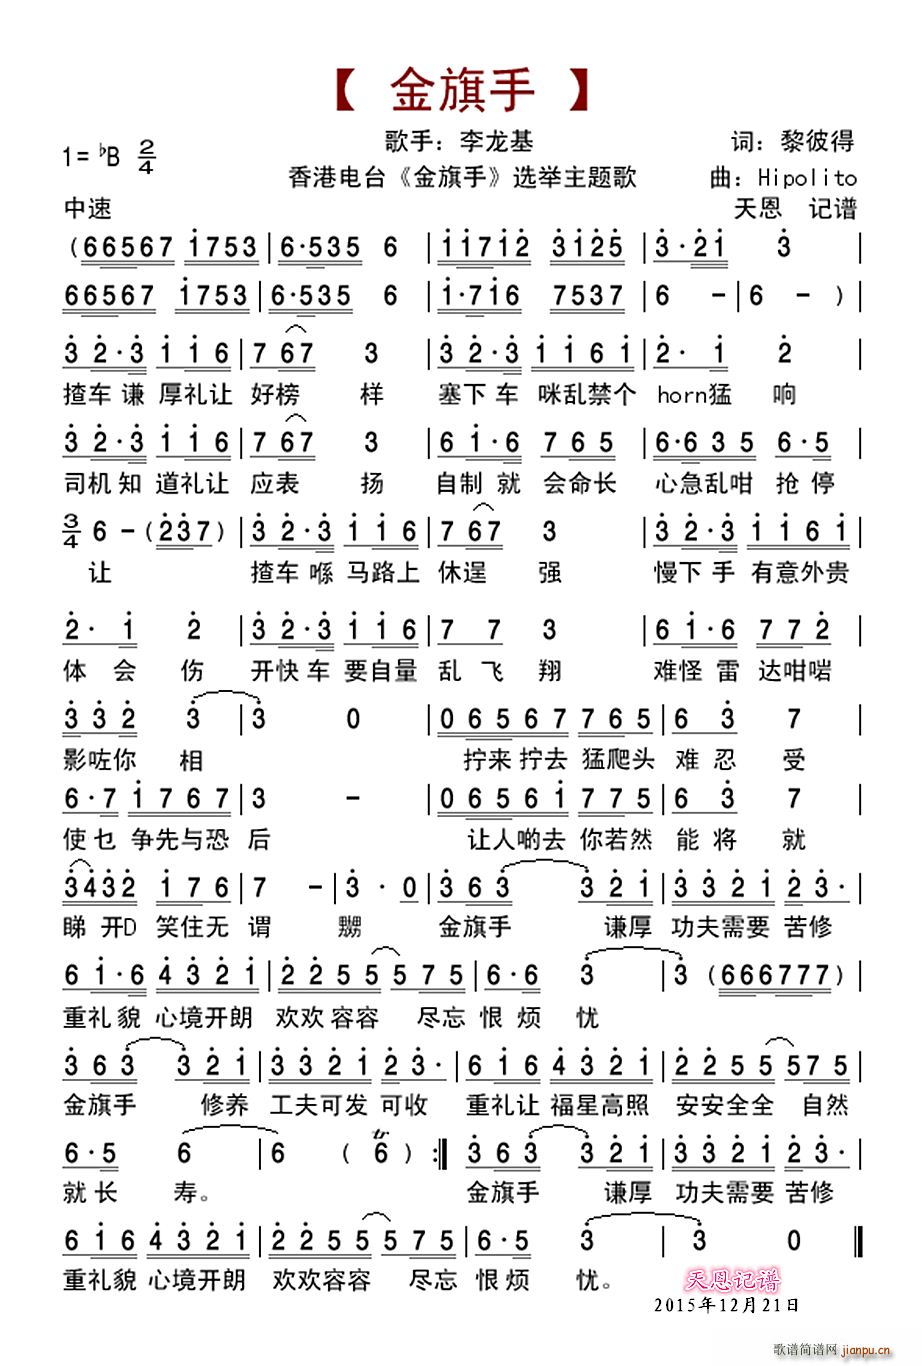 【 金旗手 】
1=♭B 2/4 歌手：李龙基 词：黎彼得
香港电台《金旗手》选举主题歌 曲：Hipolito
中速 天恩 记谱
(66567 1753 | 6·535 6 | 11712 3125 | 3·21 3 |
66567 1753 | 6·535 6 | 1·716 7537 | 6 － | 6 － )
3 2·3 1 1 6 | 7 67 3 | 3 2·3 1 1 6 1 | 2· 1 2
揸车谦 厚礼让 好榜 样 塞下车 咪乱禁个 horn猛 响
3 2·3 1 1 6 | 7 67 3 | 6 1·6 7 6 5 | 6·6 3 5 6·5 |
司机知 道礼让 应表 扬 自制就 会命长 心急乱咁 抢停
3/4 6 － (237) | 3 2·3 1 1 6 | 7 67 3 | 3 2·3 1 1 6 1 |
让 揸车喺 马路上 休逞 强 慢下手 有意外贵
2· 1 2 | 3 2·3 1 1 6 | 7 7 3 | 6 1·6 7 7 2 |
体会 伤 开快车 要自量 乱飞 翔 难怪雷 达咁啱
3 3 2 3 | 3 0 | 0 6 5 6 7 7 6 5 | 6 3 7 |
影咗你 相 拧来拧去 猛爬头 难忍 受
6·7 1767 | 3 － | 0 6 5 6 1 7 7 5 | 6 3 7 |
使乜 争先与恐 后 让人啲去 你若然 能将 就
3432 1 7 6 | 7 － | 3· 0 | 3 6 3 3 2 1 | 3 3 2 1 2 3· |
睇 开D 笑住无 谓 嬲 金旗手 谦厚 功夫需要 苦修
6 1·6 4 3 2 1 | 2 2 5 5 5 7 5 | 6·6 3 | 3 (666777) |
重礼貌 心境开朗 欢欢容容 尽忘 恨烦 忧
3 6 3 3 2 1 | 3 3 2 1 2 3· | 6 1 6 4 3 2 1 | 2 2 5 5 5 7 5 |
金旗手 修养 工夫可发 可收 重礼让 福星高照 安安全全 自然
6·5 6 | 6 ( 6 ) :‖ 3 6 3 3 2 1 | 3 3 2 1 2 3· |
就长 寿。 金旗手 谦厚 功夫需要 苦修
6 1 1 6 4 3 2 1 | 2 2 5 5 5 7 5 | 6·5 3 | 3 0 ‖
重礼貌 心境开朗 欢欢容容 尽忘 恨烦 忧。
天恩记谱
2015年12月21日
歌谱简谱网 jianpu.cn